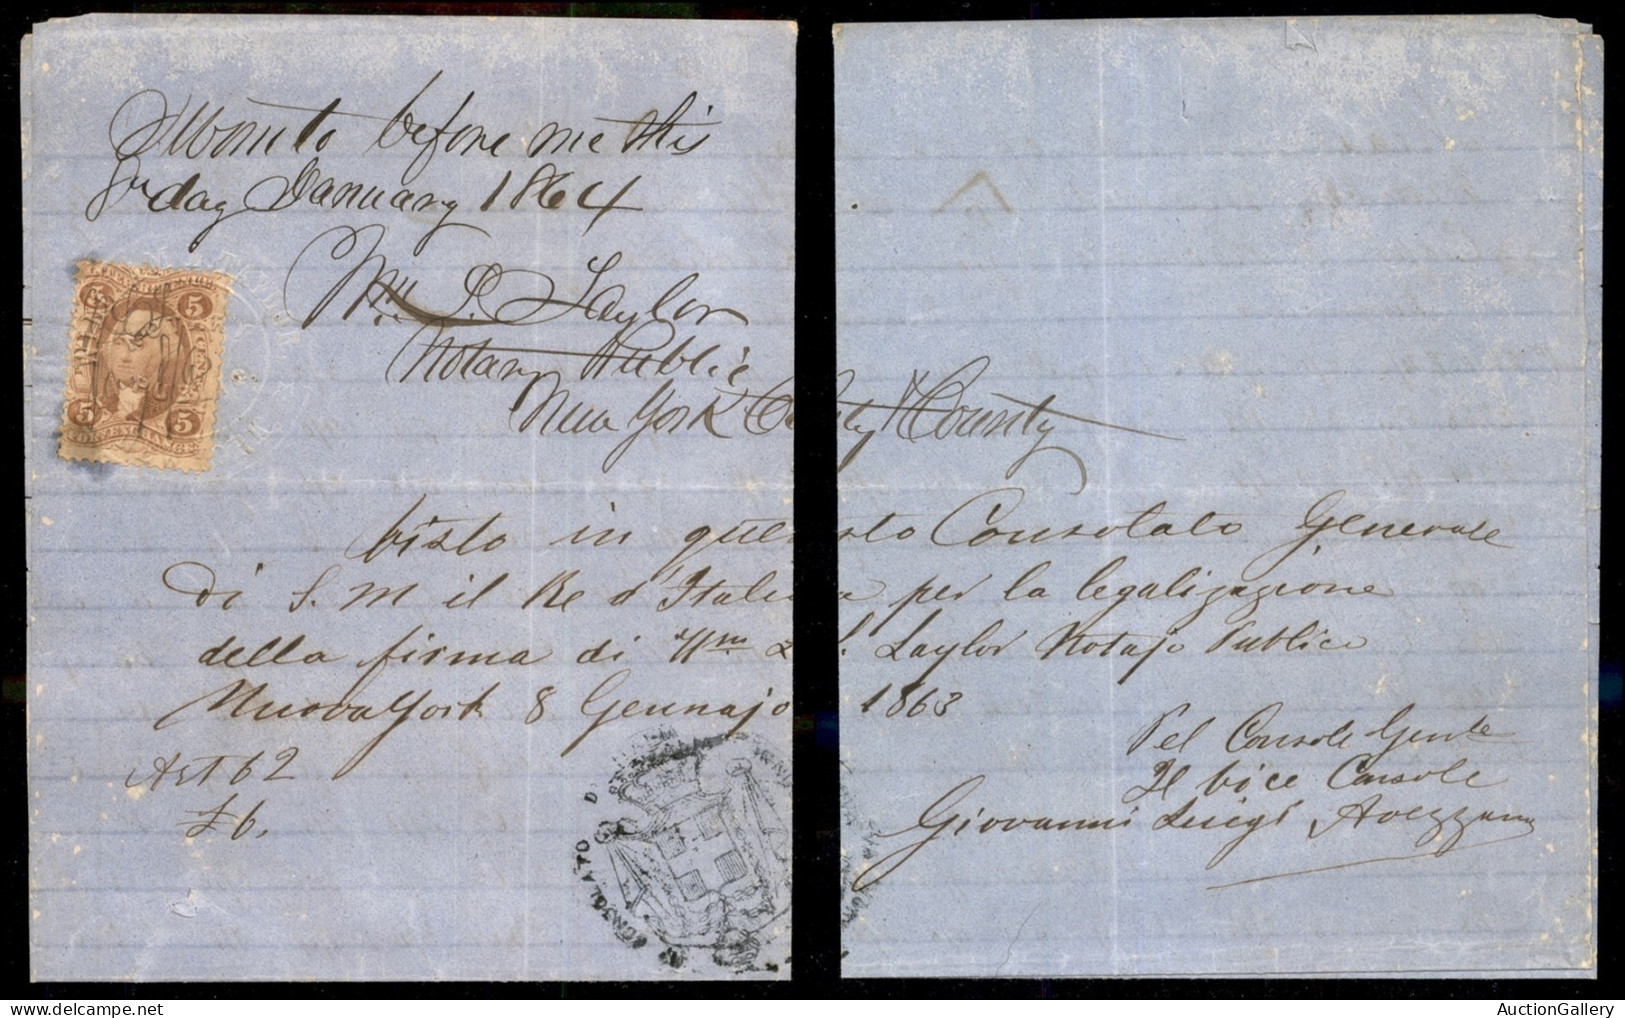 Sworn to before me this
day January 1864
Wm. L. Taylor
Notary Public
New York City & County
5 5
5 5
Visto in questo Consolato Generale
di S. M il Re d'Italia per la legalizzazione
della firma di Wm L. Taylor Notajo Publico
Nuova York 8 Gennajo 1863
Art 62
£6.
CONSOLATO D
Pel Console Gente
Il Vice Console
Giovanni Luigi Avezzana
AuctionGallery